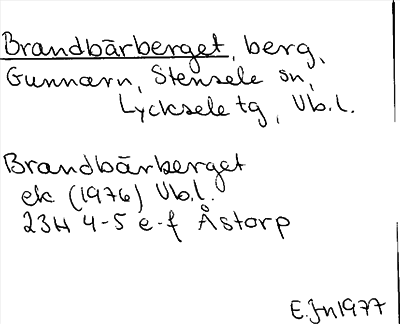 Brandbärberget, berg,
Gunnarn, Stensele sn,
Lycksele tg, Vb.l.
Brandbärberget
ek (1976) Vb.l.
23H 4-5 e-f Åstorp
E.Jn 1977